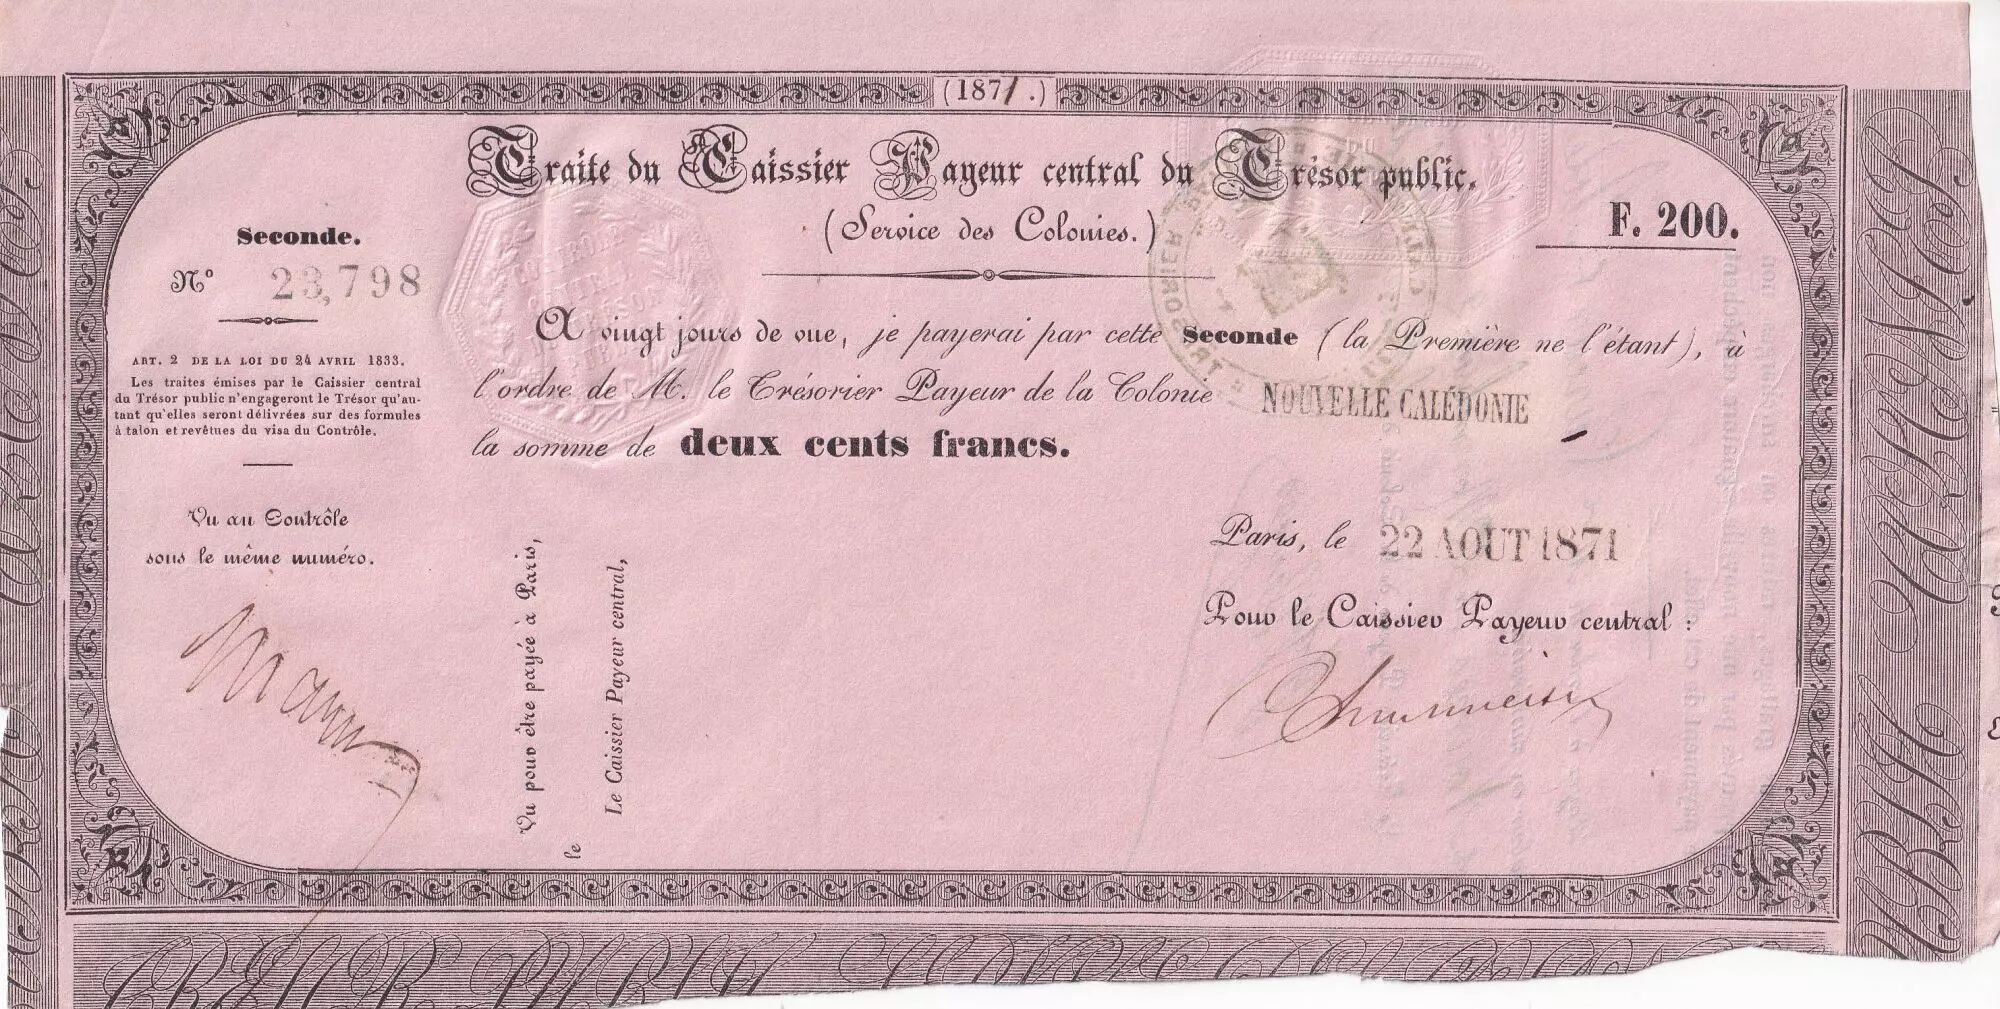 (1871.)
Traite du Caissier Payeur central du Trésor public.
(Service des Colonies.)
F. 200.
Seconde.
N° 23,798
ART. 2 DE LA LOI DU 24 AVRIL 1833.
Les traites émises par le Caissier central
du Trésor public n'engageront le Trésor qu'au-
tant qu'elles seront délivrées sur des formules
à talon et revêtues du visa du Contrôle.
Vu au Contrôle
sous le même numéro.
A vingt jours de vue, je payerai par cette Seconde (la Première ne l'étant), à
l'ordre de M. le Trésorier Payeur de la Colonie NOUVELLE CALÉDONIE
la somme de deux cents francs.
Paris, le 22 AOUT 1871
Pour le Caissier Payeur central :
Vu pour être payée à Paris,
le
Le Caissier Payeur central,